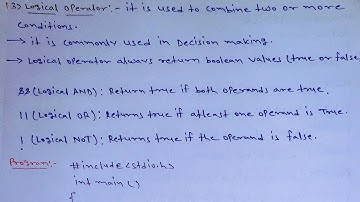 3) Logical Operator:- it is used to combine two or more
conditions.
→ it is commonly used in Decision making.
→ Logical operator always return boolean values (true or false
&& (Logical AND): Return true if both operands are true.
|| (Logical OR): Returns true if atleast one operand is True.
! (Logical NOT): Returns true if the operand is false.
Program:- #include <stdio.h>
int main()
{